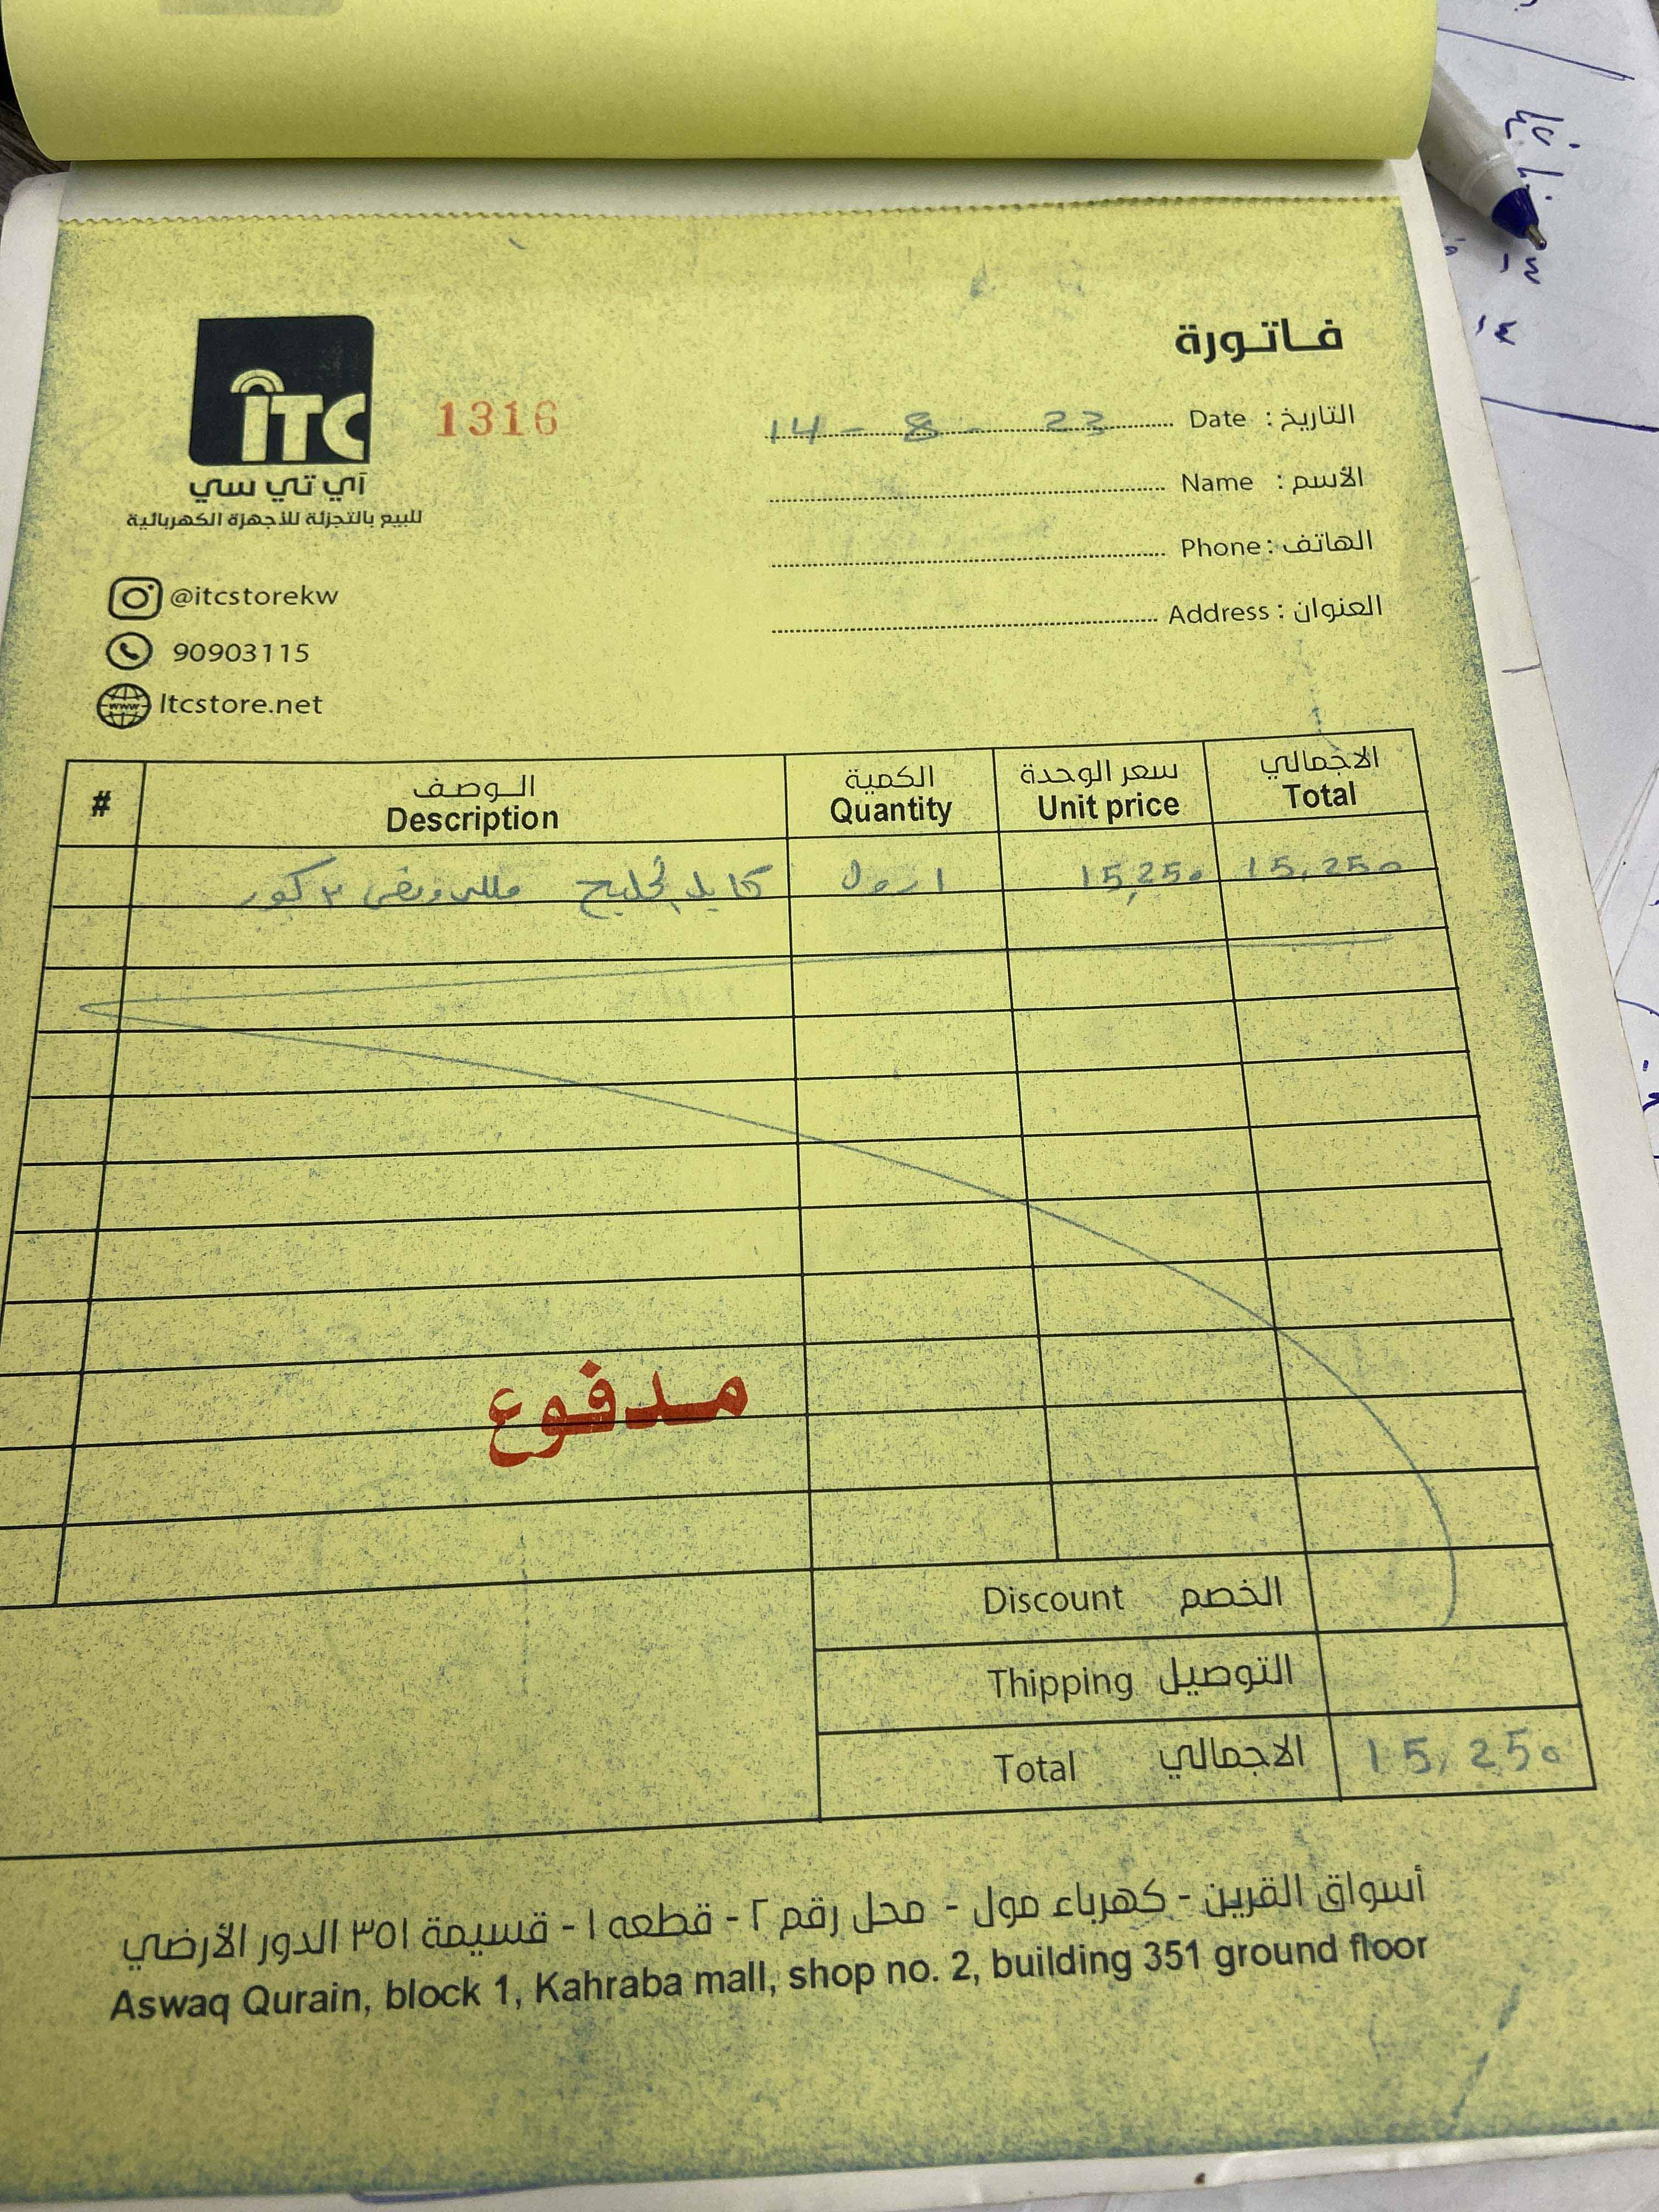 فاتورة
ITC
آي تي سي
للبيع بالتجزئة للأجهزة الكهربائية
1316
التاريخ : Date 14 - 8 - 23
الأسم : Name
الهاتف : Phone
العنوان : Address
@itcstorekw
90903115
www
Itcstore.net
# الوصف الكمية سعر الوحدة الاجمالي
Description Quantity Unit price Total
كابل الخليج مللي ونص ٣ كور ١ رول 15,250 15,250
مدفوع
Discount الخصم
Thipping التوصيل
Total الاجمالي 15,250
أسواق القرين - كهرباء مول - محل رقم ٢ - قطعه ١ - قسيمة ٣٥١ الدور الأرضي
Aswaq Qurain, block 1, Kahraba mall, shop no. 2, building 351 ground floor